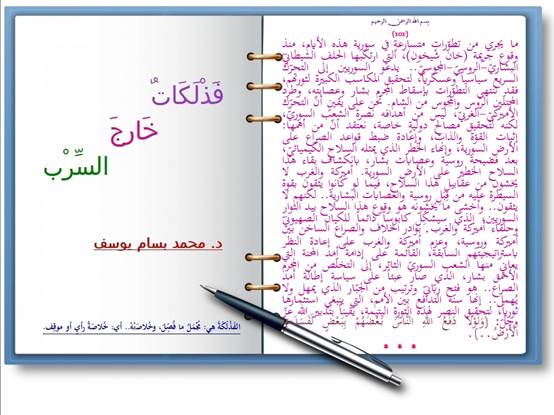 بسم الله الرحمن الرحيم
(101)
ما يجري من تطوّراتٍ متسارعةٍ في سورية هذه الأيام، منذ
وقوع جريمة (خان شيخون)، التي ارتكبها الحلف الشيطاني
الأسديّ-الروسيّ-المجوسيّ.. يدعو السوريين إلى التحرّك
السريع سياسياً وعسكرياً، لتحقيق المكاسب الكبيرة لثورتهم،
فقد تنتهي التطوّرات بإسقاط المجرم بشار وعصابته، وطرد
المحتلّين الروس والمجوس من الشام. نحن على يقينٍ أنّ التحرّك
الأميركيّ-الغربيّ، ليس من أهدافه نصرة الشعب السوريّ،
لكنه لتحقيق مصالح دوليةٍ خاصة، نعتقد أنّ من أهمّها:
إثبات القوّة والذات، وإعادة ضبط قواعد الصراع على
الأرض السورية، وإنهاء الخطر الذي يمثله السلاح الكيميائيّ،
بعد فضيحة روسية وعصابات بشار، بانكشاف بقاء هذا
السلاح الخطير على الأرض السورية. أميركة والغرب لا
يخشون من عقابيل هذا السلاح، فيما لو كانوا يثقون بقوة
السيطرة عليه من قِبَل روسية والعصابات البشارية.. لكنهم لا
يثقون.. وأخشى ما يخشونه هو وقوع هذا السلاح بيد الثوار
السوريين، الذي سيشكّل كابوساً دائماً للكيان الصهيونيّ
وحلفاء أميركة والغرب. بوادر الخلاف والصراع الساخن بين
أميركة وروسية، وعزم أميركة والغرب على إعادة النظر
باستراتيجيتهم السابقة، القائمة على إدامة أمد المحنة التي
يعاني منها الشعب السوريّ الثائر، إلى التخلّص من المجرم
الأحمق بشار، الذي صار عبئاً على سياسة إطالة أمد
الصراع.. هو فتح ربّانيّ وترتيب من الجبّار الذي يمهل ولا
يُهمل.. إنها سنّة التدافع بين الأمم، التي ينبغي استثمارها
ثورياً، لتحقيق النصر لهذه الثورة اليتيمة، يقيناً بتدبير الله عزّ
وجلّ: (وَلَوْلا دَفْعُ اللهِ النَّاسَ بَعْضَهُمْ بِبَعْضٍ لَفَسَدَتِ
الأَرْضُ..).
* * *
فَذْلَكَاتٌ
خَارجَ
السِّرْب
د. محمد بسام يوسف
الفَذْلَكَةُ هي: مُجْمَلُ ما فُصِّلَ، وخُلاصَتُهُ.. أي: خُلاصَةُ رأيٍ أو موقِف.